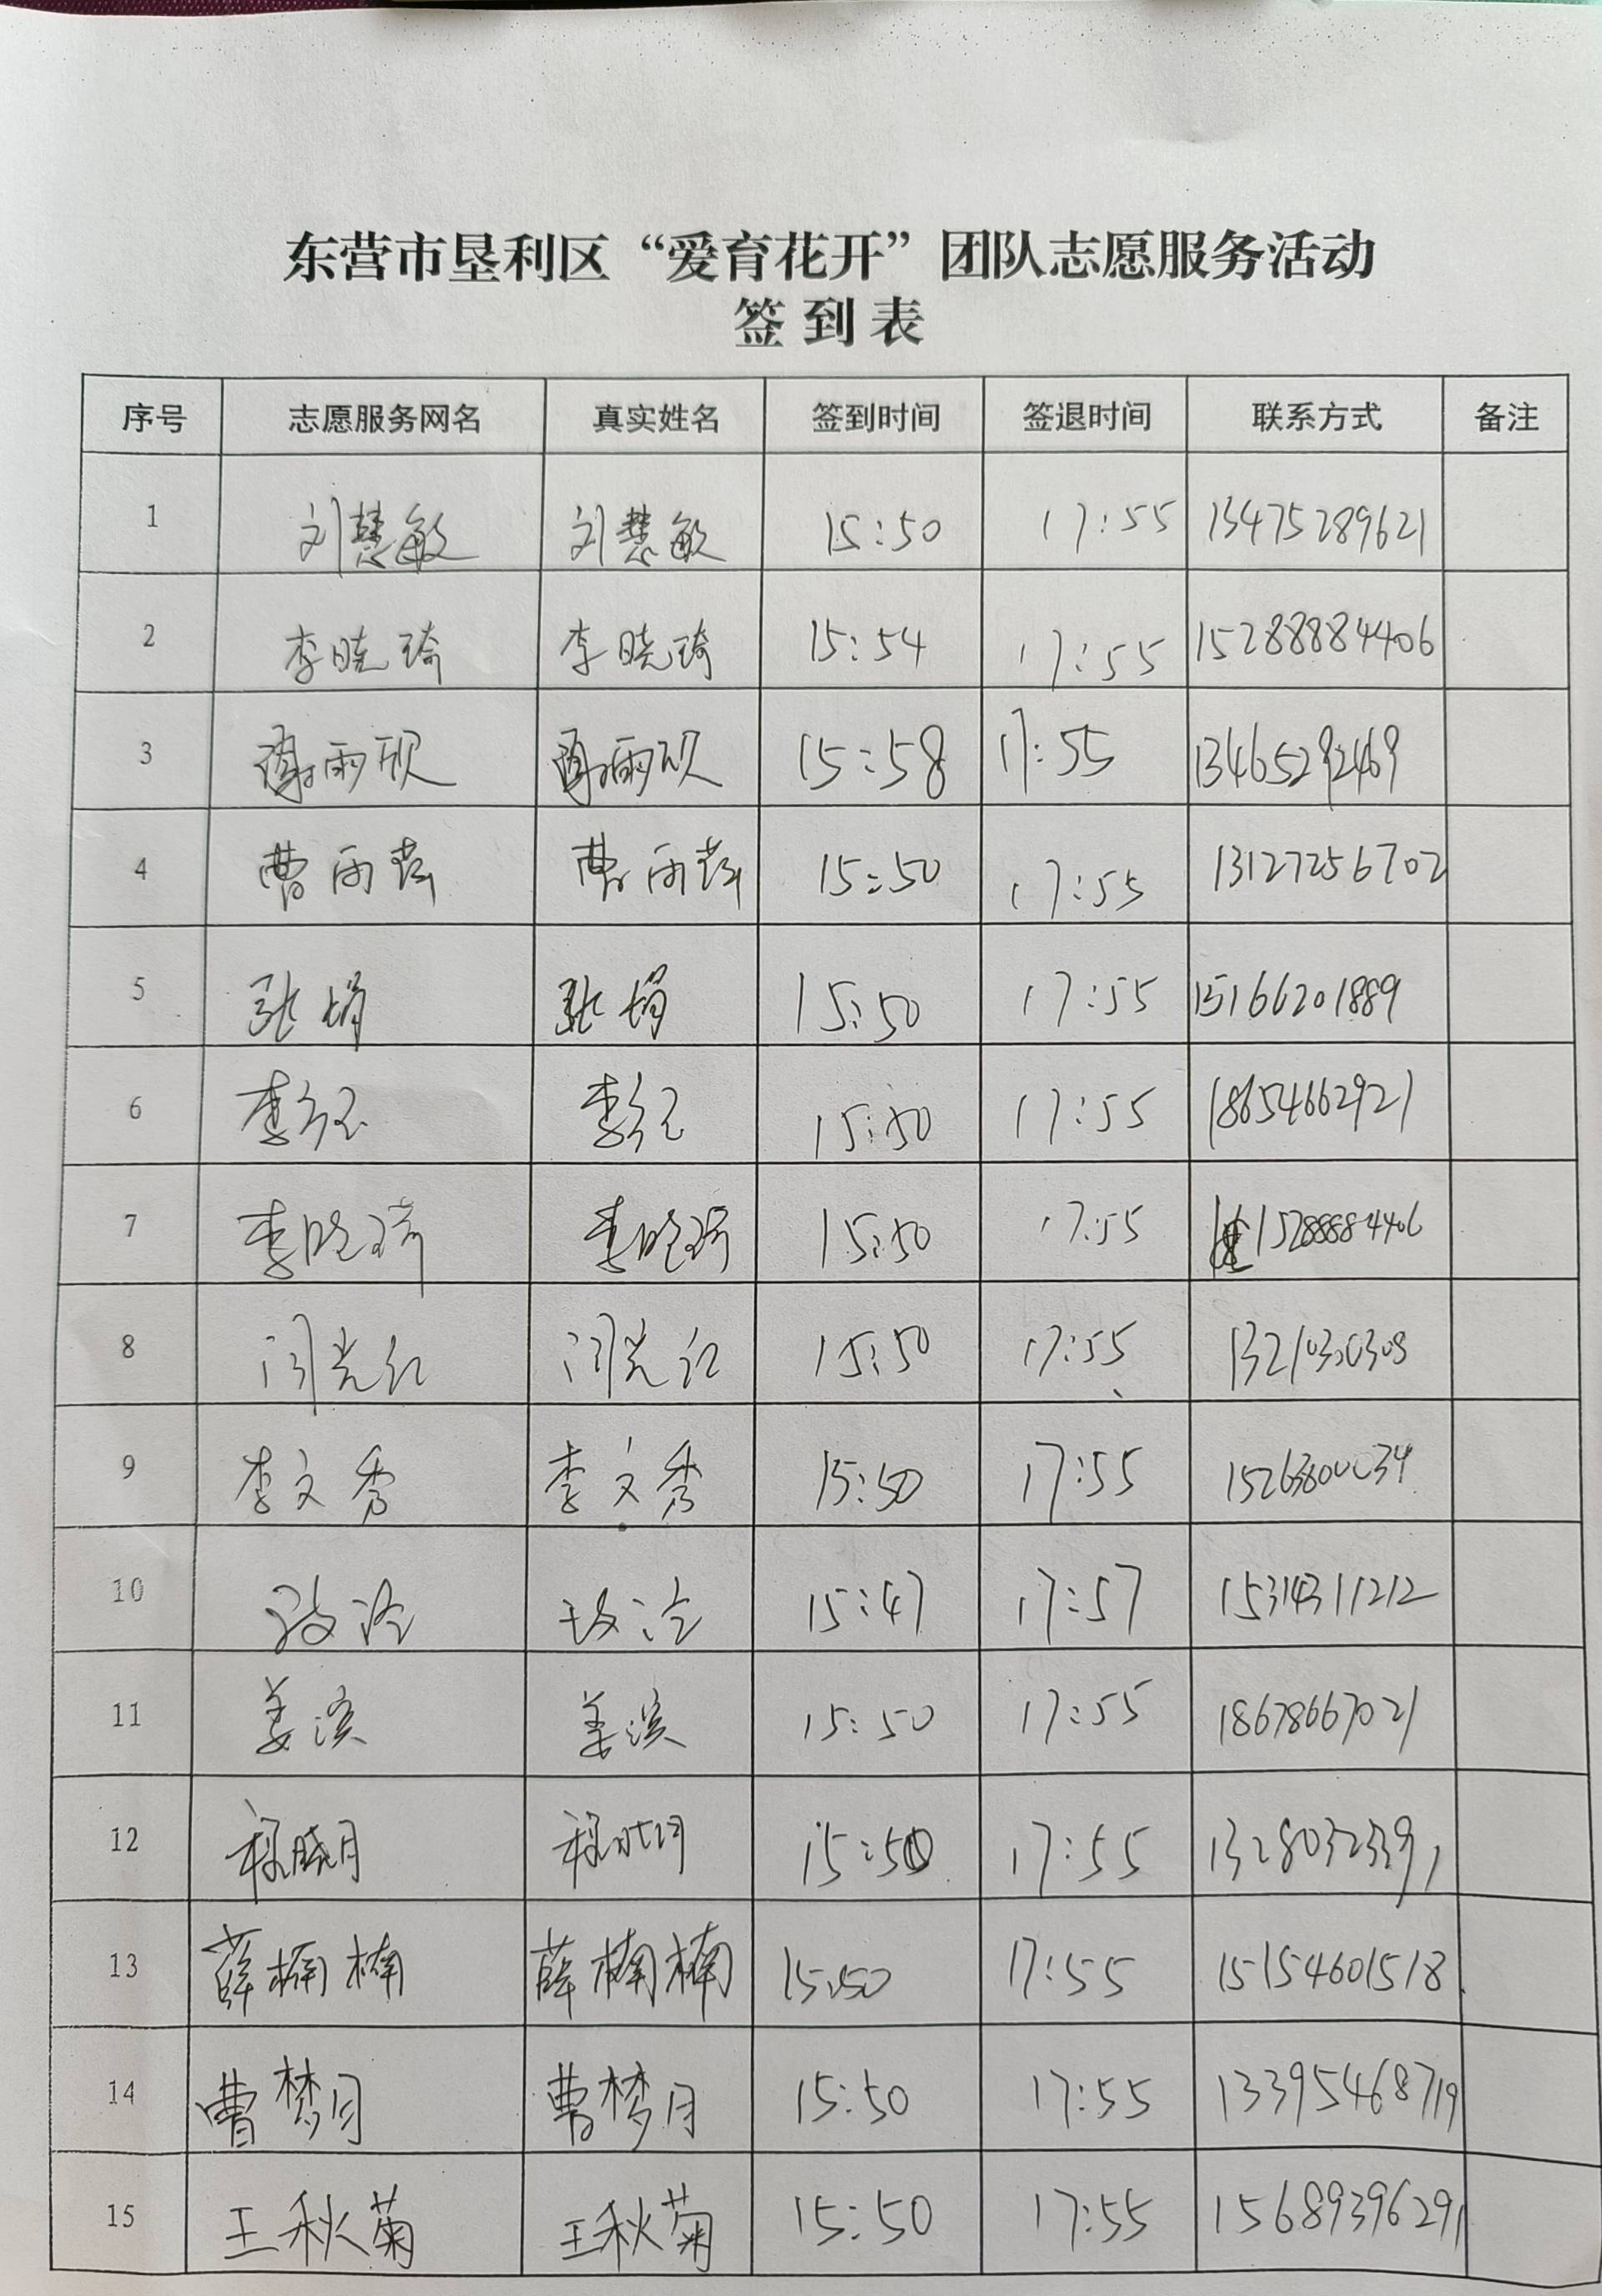 东营市垦利区“爱育花开”团队志愿服务活动
签到表
序号 志愿服务网名 真实姓名 签到时间 签退时间 联系方式 备注
1 刘慧敏 刘慧敏 15:50 17:55 13475289621
2 李晓琦 李晓琦 15:54 17:55 15288884406
3 15:58 17:55 13465292469
4 曹雨蕊 曹雨蕊 15:50 17:55 13127256702
5 张娟 张娟 15:50 17:55 15166201889
6 15:50 17:55 18654662921
7 李晓琦 李晓琦 15:50 17:55 15288884406
8 闫光红 闫光红 15:50 17:55
9 李文秀 李文秀 15:50 17:55 15263800034
10 15:47 17:57 15314311212
11 姜滨 姜滨 15:50 17:55 18678667021
12 程晓月 程晓月 15:50 17:55 13280323391
13 薛楠楠 薛楠楠 15:50 17:55 15154601518
14 曹梦月 曹梦月 15:50 17:55 13395468719
15 王秋菊 王秋菊 15:50 17:55 15689396291